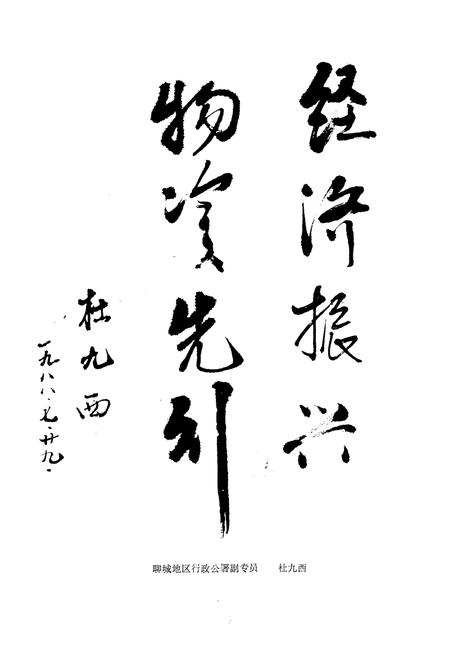 经济振兴
物资先行
杜九西
一九八八.七.廿九.
聊城地区行政公署副专员 杜九西